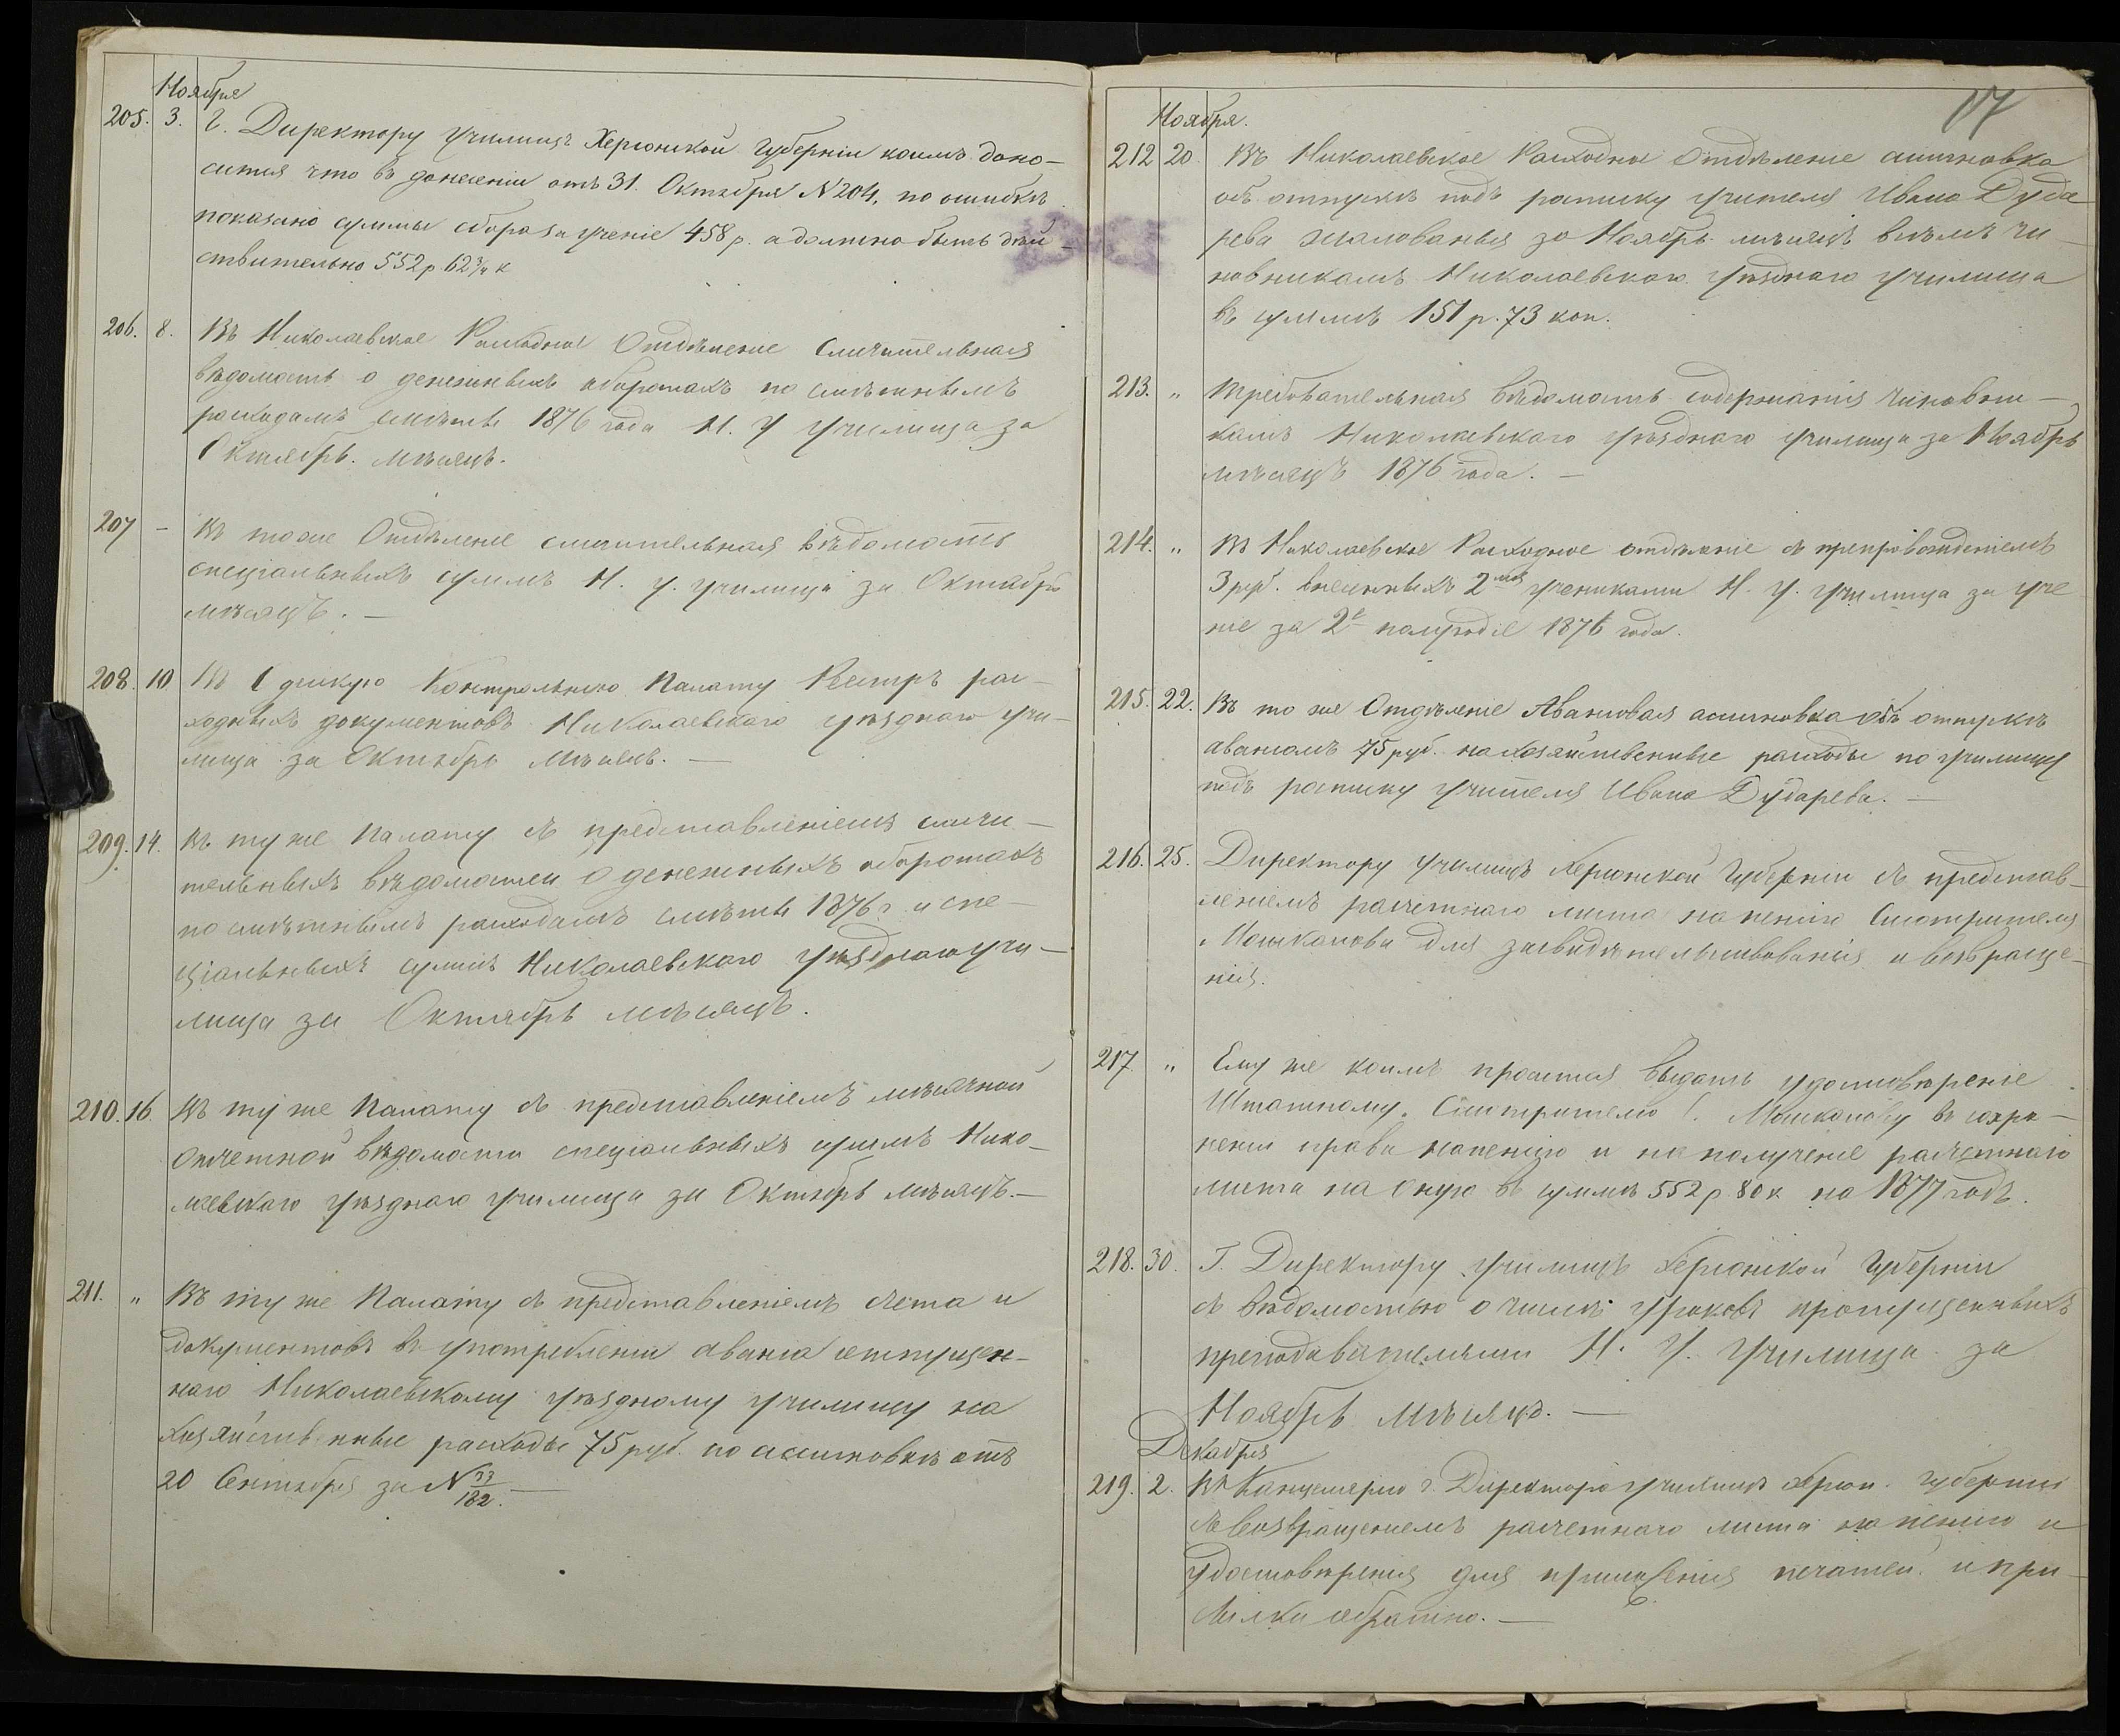 Ноября
205. 3. Г. Директору училищъ Херсонской Губерніи коимъ доно-
сится что въ донесеніи отъ 31. Октября № 204, по ошибкѣ
показано суммы сбора за ученіе 458 р. а должно быть дѣй-
ствительно 552 р 62 3/4 к
206. 8. Въ Николаевское Расходное Отдѣленіе Сличительная
вѣдомость о денежныхъ оборотахъ по смѣтнымъ
расходамъ смѣты 1876 года Н. У Училища за
Октябрь. мѣсяцъ.
207 - Въ тоже Отдѣленіе сличительная вѣдомость
спеціальныхъ суммъ Н. у. училища за Октябрь
мѣсяцъ. —
208. 10 Въ Одесскую Контрольную Палату Реестръ рас-
ходныхъ документовъ Николаевскаго уѣзднаго учи-
лища за Октябрь мѣсяцъ. —
209. 14. Въ ту же Палату съ представленіемъ сличи-
тельныхъ вѣдомостей о денежныхъ оборотахъ
по смѣтнымъ расходамъ смѣты 1876 г. и спе-
ціальныхъ суммъ Николаевскаго уѣзднаго учи-
лища за Октябрь мѣсяцъ.
210. 16. Въ ту же Палату съ представленіемъ мѣсячной
отчетной вѣдомости спеціальныхъ суммъ Нико-
лаевскаго уѣзднаго училища за Октябрь мѣсяцъ. —
211. " Въ ту же Палату съ представленіемъ счета и
документовъ въ употребленіи аванса отпущен-
наго Николаевскому уѣздному училищу на
хозяйственные расходы 75 руб. по ассигновкѣ отъ
20 Сентября за № 33/182. —
17
Ноября.
212 20 Въ Николаевское Расходное Отдѣленіе ассигновка
объ отпускѣ подъ росписку учителя Ивана Дуда
рева жалованья за Ноябрь мѣсяцъ всѣмъ чи-
новникамъ Николаевскаго уѣзднаго училища
въ суммѣ 151 р. 73 коп.
213. " Требовательная вѣдомость содержанія чиновни-
камъ Николаевскаго уѣзднаго училища за Ноябрь
мѣсяцъ 1876 года. —
214. " Въ Николаевское Расходное отдѣленіе съ препровожденіемъ
3 руб. внесенныхъ 2мя учениками Н. У. Училища за уче
ніе за 2е полугодіе 1876 года.
215. 22. Въ то же Отдѣленіе Авансовая ассигновка объ отпускѣ
авансомъ 75 руб. на хозяйственные расходы по училищу
подъ росписку учителя Ивана Дударева. —
216. 25. Директору училищъ Херсонской Губерніи съ представ-
леніемъ расчетнаго листа на пенсію Смотрителя
Машканова для засвидѣтельствованія и возвраще-
нія.
217. " Ему же коимъ просится выдать удостовѣреніе
Штатному Смотрителю Г. Машканову въ сохра-
неніи права на пенсію и на полученіе расчетнаго
листа на оную въ суммѣ 552 р 80 к на 1877 годъ.
218. 30. Г. Директору училищъ Херсонской Губерніи
съ вѣдомостью о числѣ уроковъ пропущенныхъ
преподавателями Н. У. Училища за
Ноябрь мѣсяцъ. —
Декабря
219. 2. Въ Канцелярію г. Директора училищъ Херсон. губерніи
съ возвращеніемъ расчетнаго листа на пенсію и
удостовѣренія для приложенія печатей и при-
сылки обратно. —